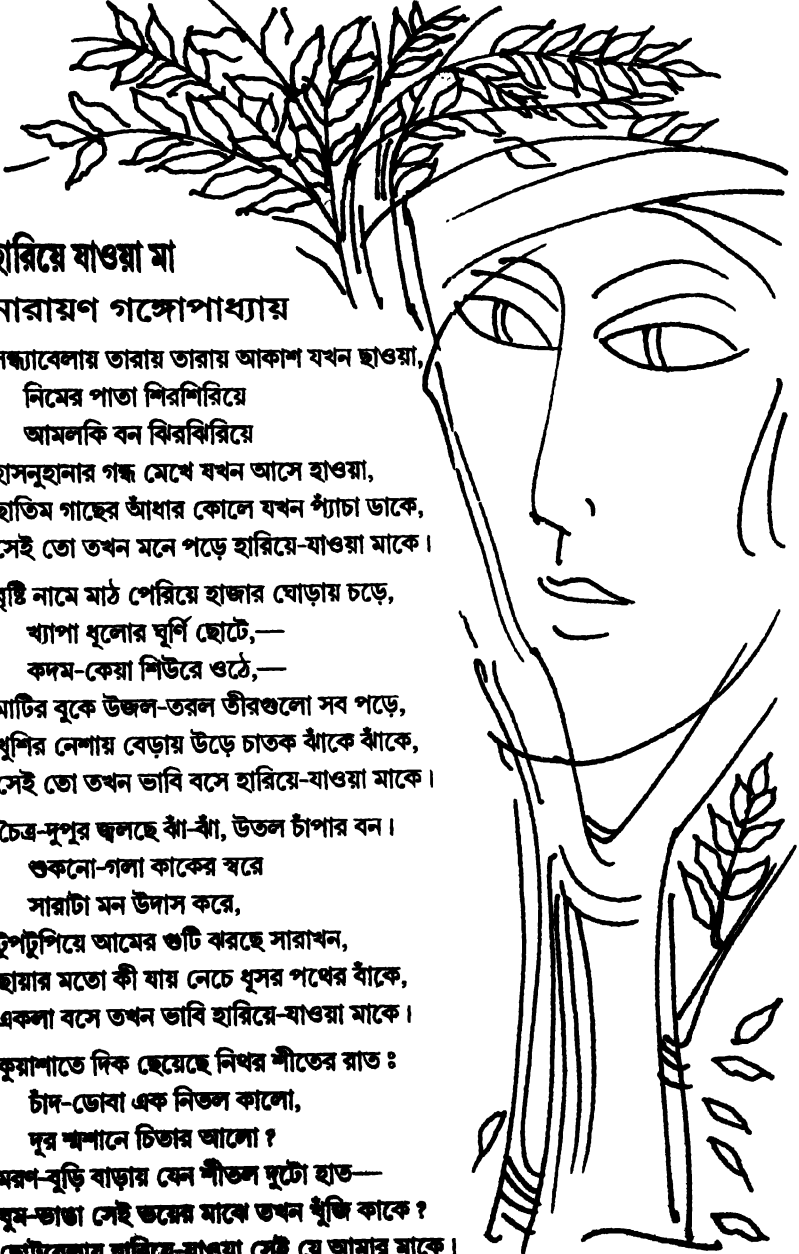 হারিয়ে যাওয়া মা
নারায়ণ গঙ্গোপাধ্যায়
সন্ধ্যাবেলায় তারায় তারায় আকাশ যখন ছাওয়া,
নিমের পাতা শিরশিরিয়ে
আমলকি বন ঝিরঝিরিয়ে
হাসনুহানার গন্ধ মেখে যখন আসে হাওয়া,
ছাতিম গাছের আঁধার কোলে যখন প্যাঁচা ডাকে,
সেই তো তখন মনে পড়ে হারিয়ে-যাওয়া মাকে।
বৃষ্টি নামে মাঠ পেরিয়ে হাজার ঘোড়ায় চড়ে,
খ্যাপা ধূলোর ঘূর্ণি ছোটে,—
কদম-কেয়া শিউরে ওঠে,—
মাটির বুকে উজল-তরল তীরগুলো সব পড়ে,
খুশির নেশায় বেড়ায় উড়ে চাতক ঝাঁকে ঝাঁকে,
সেই তো তখন ভাবি বসে হারিয়ে-যাওয়া মাকে।
চৈত্র-দুপুর জ্বলছে ঝাঁ-ঝাঁ, উতল চাঁপার বন।
শুকনো-গলা কাকের স্বরে
সারাটা মন উদাস করে,
টুপটুপিয়ে আমের গুটি ঝরছে সারাখন,
ছায়ার মতো কী যায় নেচে ধূসর পথের বাঁকে,
একলা বসে তখন ভাবি হারিয়ে-যাওয়া মাকে।
কুয়াশাতে দিক ছেয়েছে নিথর শীতের রাত ঃ
চাঁদ-ডোবা এক নিতল কালো,
দূর শ্মশানে চিতার আলো ?
মরণ-বুড়ি বাড়ায় যেন শীতল দুটো হাত—
ঘুম-ভাঙা সেই ভয়ের মাঝে তখন খুঁজি কাকে ?
হারিয়ে-যাওয়া সেই যে আমার মাকে।